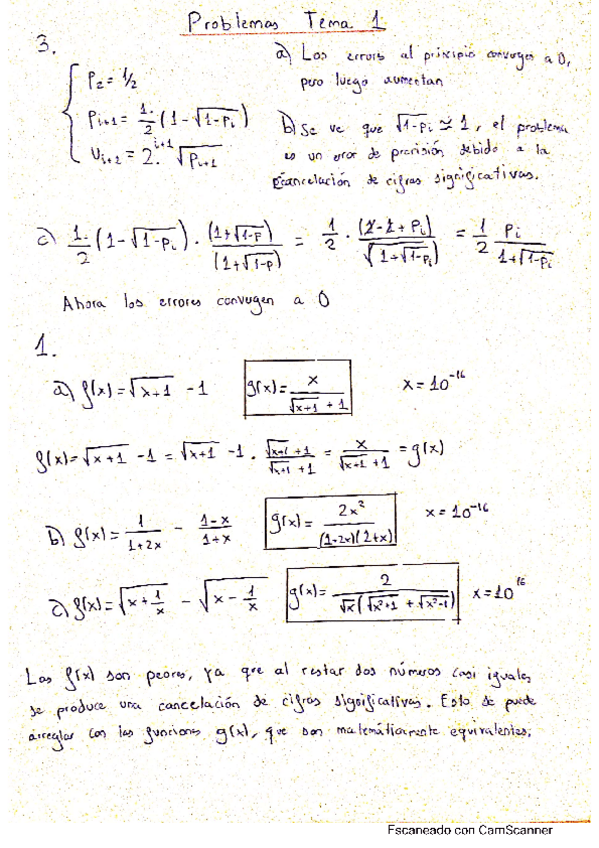 Problemas Tema 1
3.
P₂ = 1/2
Pᵢ₊₁ = 1/2 (1 - √(1-Pᵢ))
Uᵢ₊₁ = 2^(i+1) √(Pᵢ₊₁)
a) Los errores al principio convergen a 0,
pero luego aumentan
b) Se ve que √(1-Pᵢ) ≃ 1, el problema
es un error de precisión debido a la
cancelación de cifras significativas.
c) 1/2 (1 - √(1-Pᵢ)) · (1+√(1-P))/(1+√(1-P)) = 1/2 · (1-1+Pᵢ)/(1+√(1-Pᵢ)) = 1/2 Pᵢ/(1+√(1-Pᵢ))
Ahora los errores convergen a 0
1.
a) f(x) = √(x+1) - 1 g(x) = x/(√(x+1) + 1) x = 10⁻¹⁶
f(x) = √(x+1) - 1 = √(x+1) - 1 · (√(x+1) + 1)/(√(x+1) + 1) = x/(√(x+1) + 1) = g(x)
b) f(x) = 1/(1+2x) - (1-x)/(1+x) g(x) = 2x²/((1+2x)(1+x)) x = 10⁻¹⁶
c) f(x) = √(x + 1/x) - √(x - 1/x) g(x) = 2/(√x (√(x²+1) + √(x²-1))) x = 10¹⁶
Las f(x) son peores, ya que al restar dos números casi iguales
se produce una cancelación de cifras significativas. Esto se puede
arreglar con las funciones g(x), que son matemáticamente equivalentes.
Escaneado con CamScanner